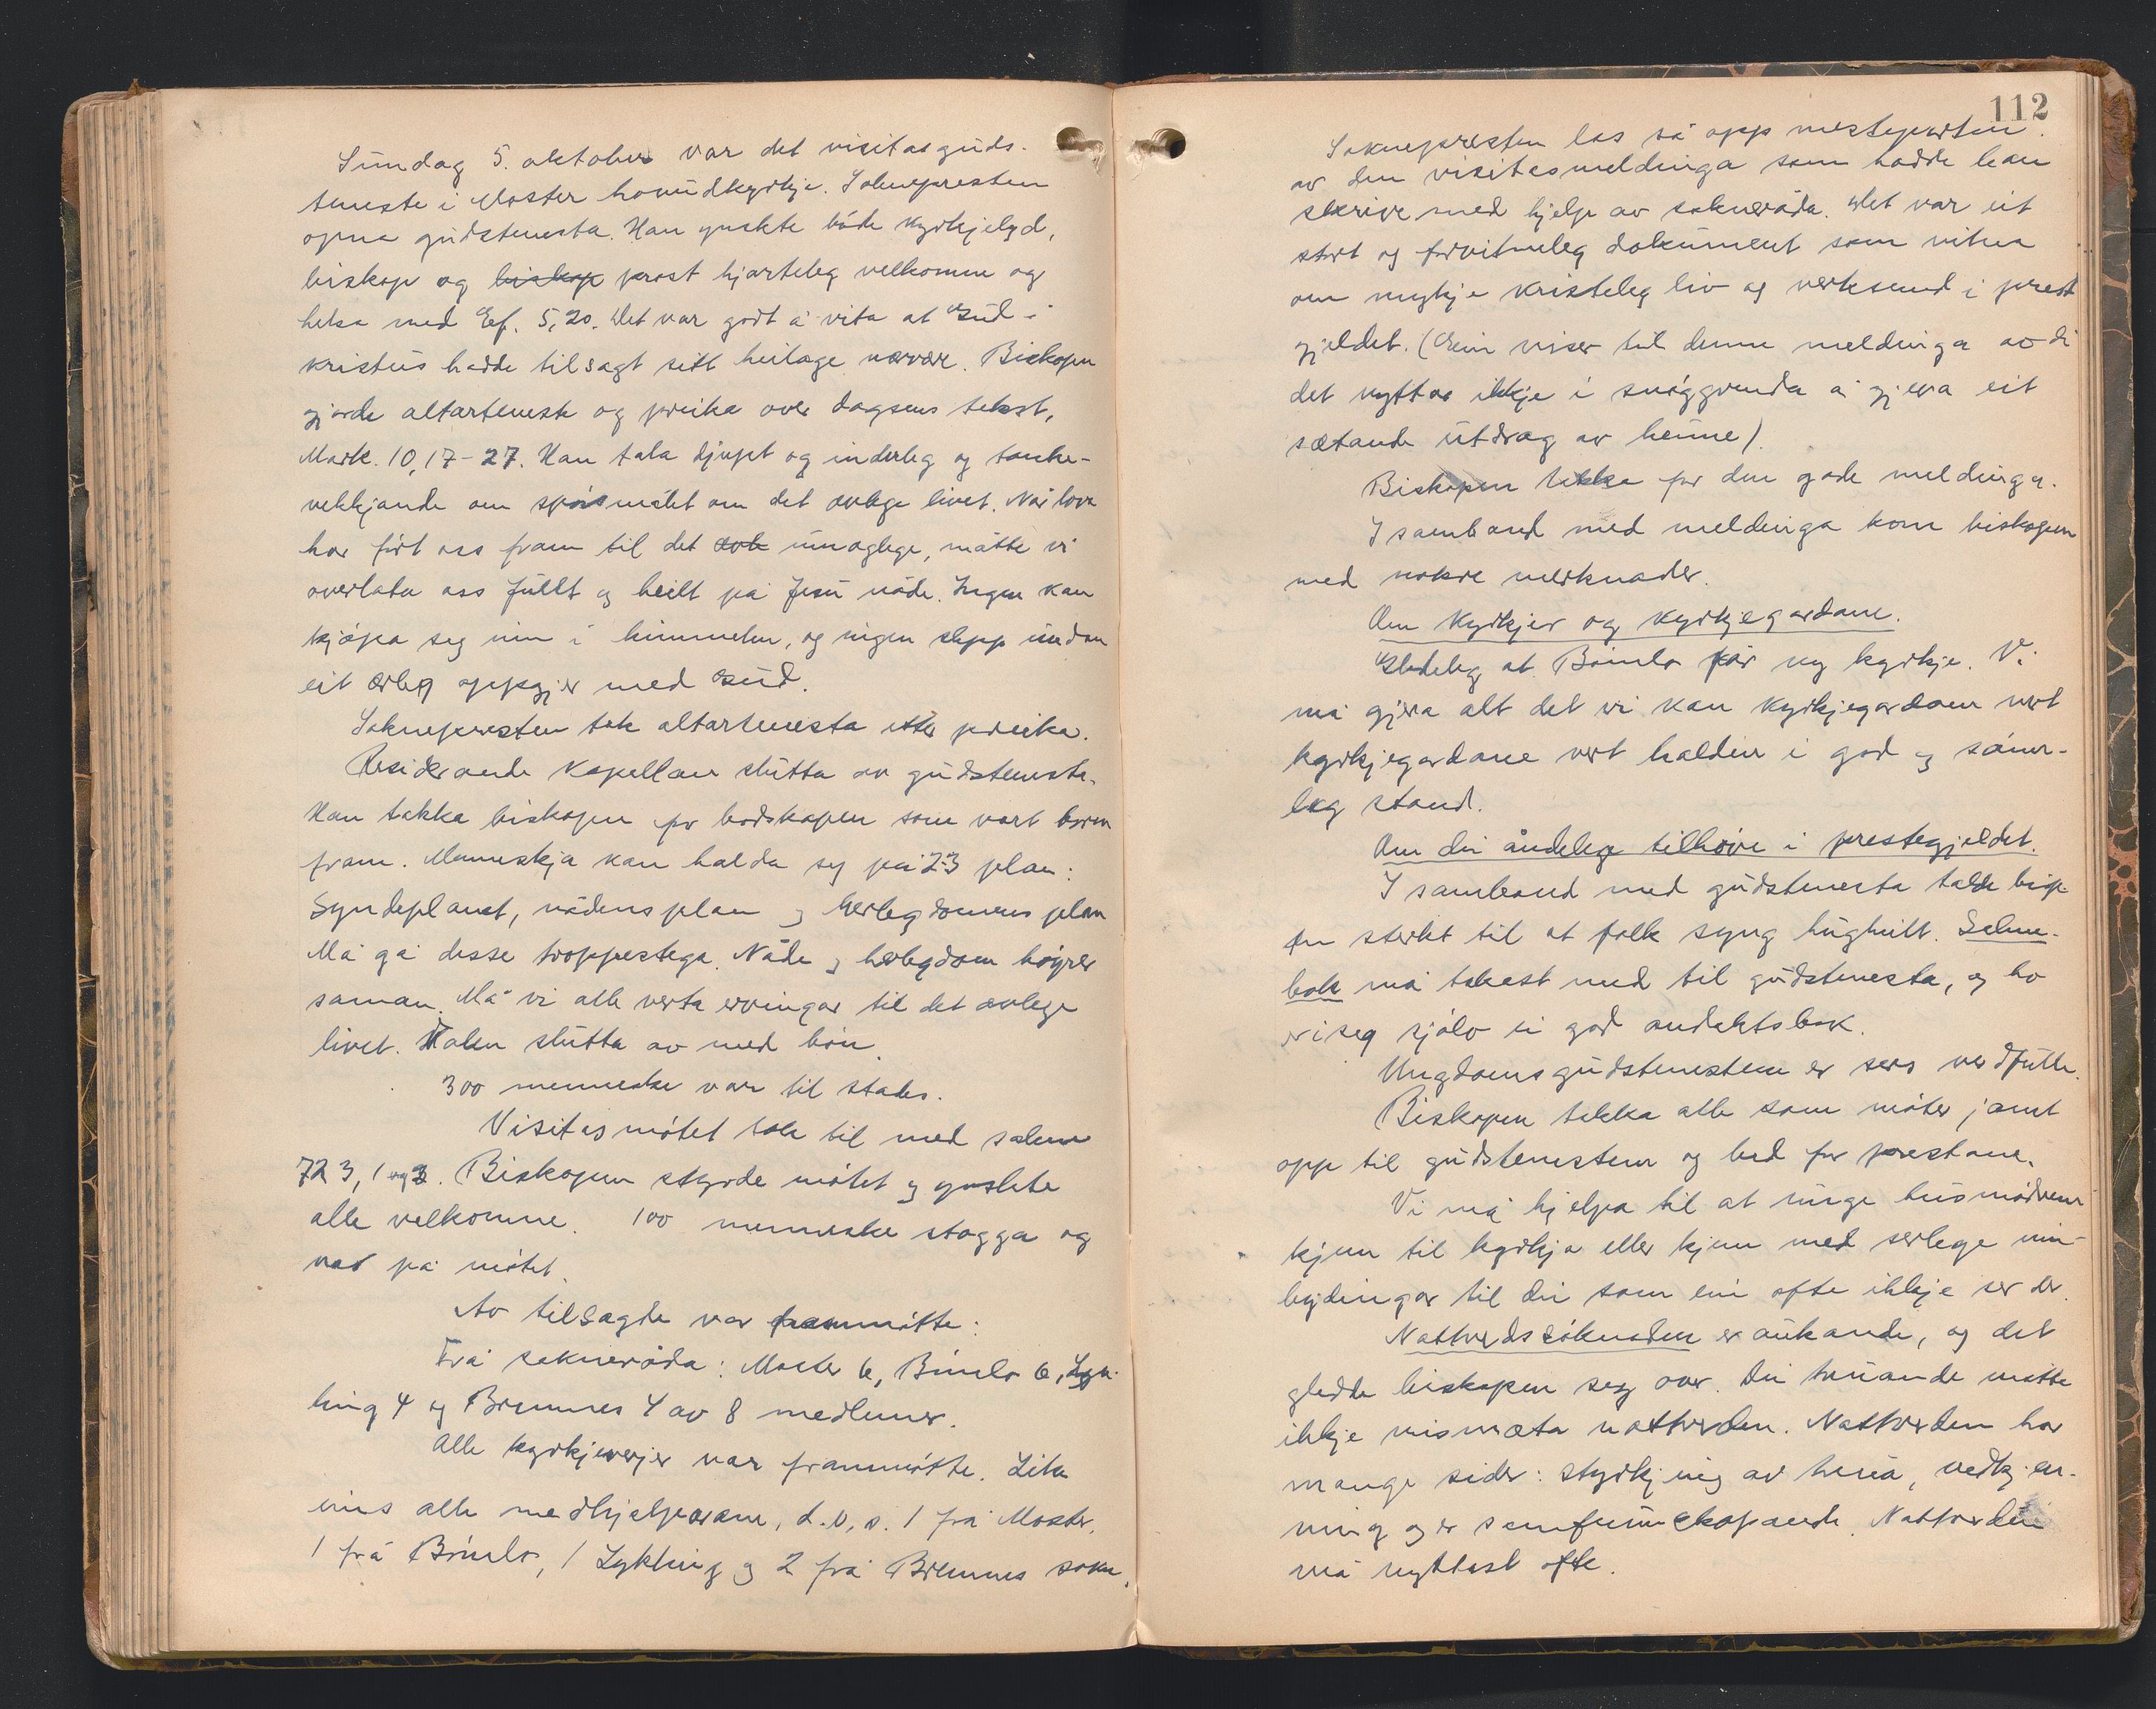 Sundag 5. oktober var det visitasguds-
teneste i Moster hovudkyrkje. Soknepresten
opna gudstenesta. Han ynskte både kyrkjelyd,
biskop og biskop prost hjarteleg velkomne og
helsa med Ef. 5,20. Det var godt å vita at Gud i
Kristus hadde tilsagt sitt heilage nærvære. Biskopen
gjorde altarteneste og preika over dagsens tekst,
Mark. 10,17-27. Han tala djupt og inderleg og tanke-
vekkjande om spørsmålet om det ævlege livet. Når lova
har ført oss fram til det umoglege, måtte vi
overlata oss fullt og heilt på Jesu nåde. Ingen kan
kjøpa seg inn i himmelen, og ingen slepp undan
eit ærleg oppgjer med Gud.
Soknepresten tok altartenesta etter preika.
Residerande kapellan slutta av gudstenesta.
Han takka biskopen for bodskapen som vart boren
fram. Menneskja kan halda seg på 2-3 plan:
Syndeplanet, nådens plan og herlegdomens plan
Må gå desse troppestega. Nåde og herlegdom høyrer
saman. Må vi alle verta ervingar til det ævlege
livet. Talen slutta av med bøn.
300 menneske var til stades.
Visitasmøtet tok til med salme
723, 1 og 3. Biskopen styrde møtet og ynskte
alle velkomne. 100 menneske stogga og
var på møtet.
Av tilsagde var frammøtte:
Frå sokneråda: Moster 6, Bømlo 6, Lyk-
ling 4 og Bremnes 4 av 8 medlemer.
Alle kyrkjeverjer var frammøtte. Like
eins alle medhjelparane, d.v.s. 1 frå Moster,
1 frå Bømlo, 1 Lykling og 2 frå Bremnes sokn.
112
Soknepresten las så opp mesteparten
av den visitasmeldinga som hadde han
skrive med hjelp av sokneråda. Det var eit
stort og forvitneleg dokument som vitna
om mykje kristeleg liv og verksemd i prest
gjeldet. (Ein viser til denne meldinga av di
det nyttar ikkje i snøggvenda å gjera eit
sætande utdrag av henne).
Biskopen takka for den gode meldinga.
I samband med meldinga kom biskopen
med nokre merknader.
Om kyrkjer og kyrkjegardane.
Gledeleg at Bømlo får ny kyrkje. Vi
må gjera alt det vi kan kyrkjegardane vert
kyrkjegardane vert haldne i god og sømer-
leg stand.
Om dei åndelege tilhøve i prestegjeldet.
I samband med gudstenesta talde bisp
en sterkt til at folk syng hugheilt. Salme-
bok må takast med til gudstenesta, og ho
er i seg sjølv ei god andaktsbok.
Ungdomsgudstenesten er sers verdfulle.
Biskopen takka alle som møter jamt
opp til gudstenesten og bed for prestane.
Vi må hjelpa til at unge husmødrene
kjem til kyrkja eller kjem med serlege inn-
bydingar til dei som ein ofte ikkje ser der.
Nattverdsøknaden er aukande, og det
gledde biskopen seg over. Dei truande måtte
ikkje mismæta nattverden. Nattverden har
mange sider: styrkjing av trua, vedkjen-
ning og er samfunnskapande. Nattverden
må nyttast ofte.